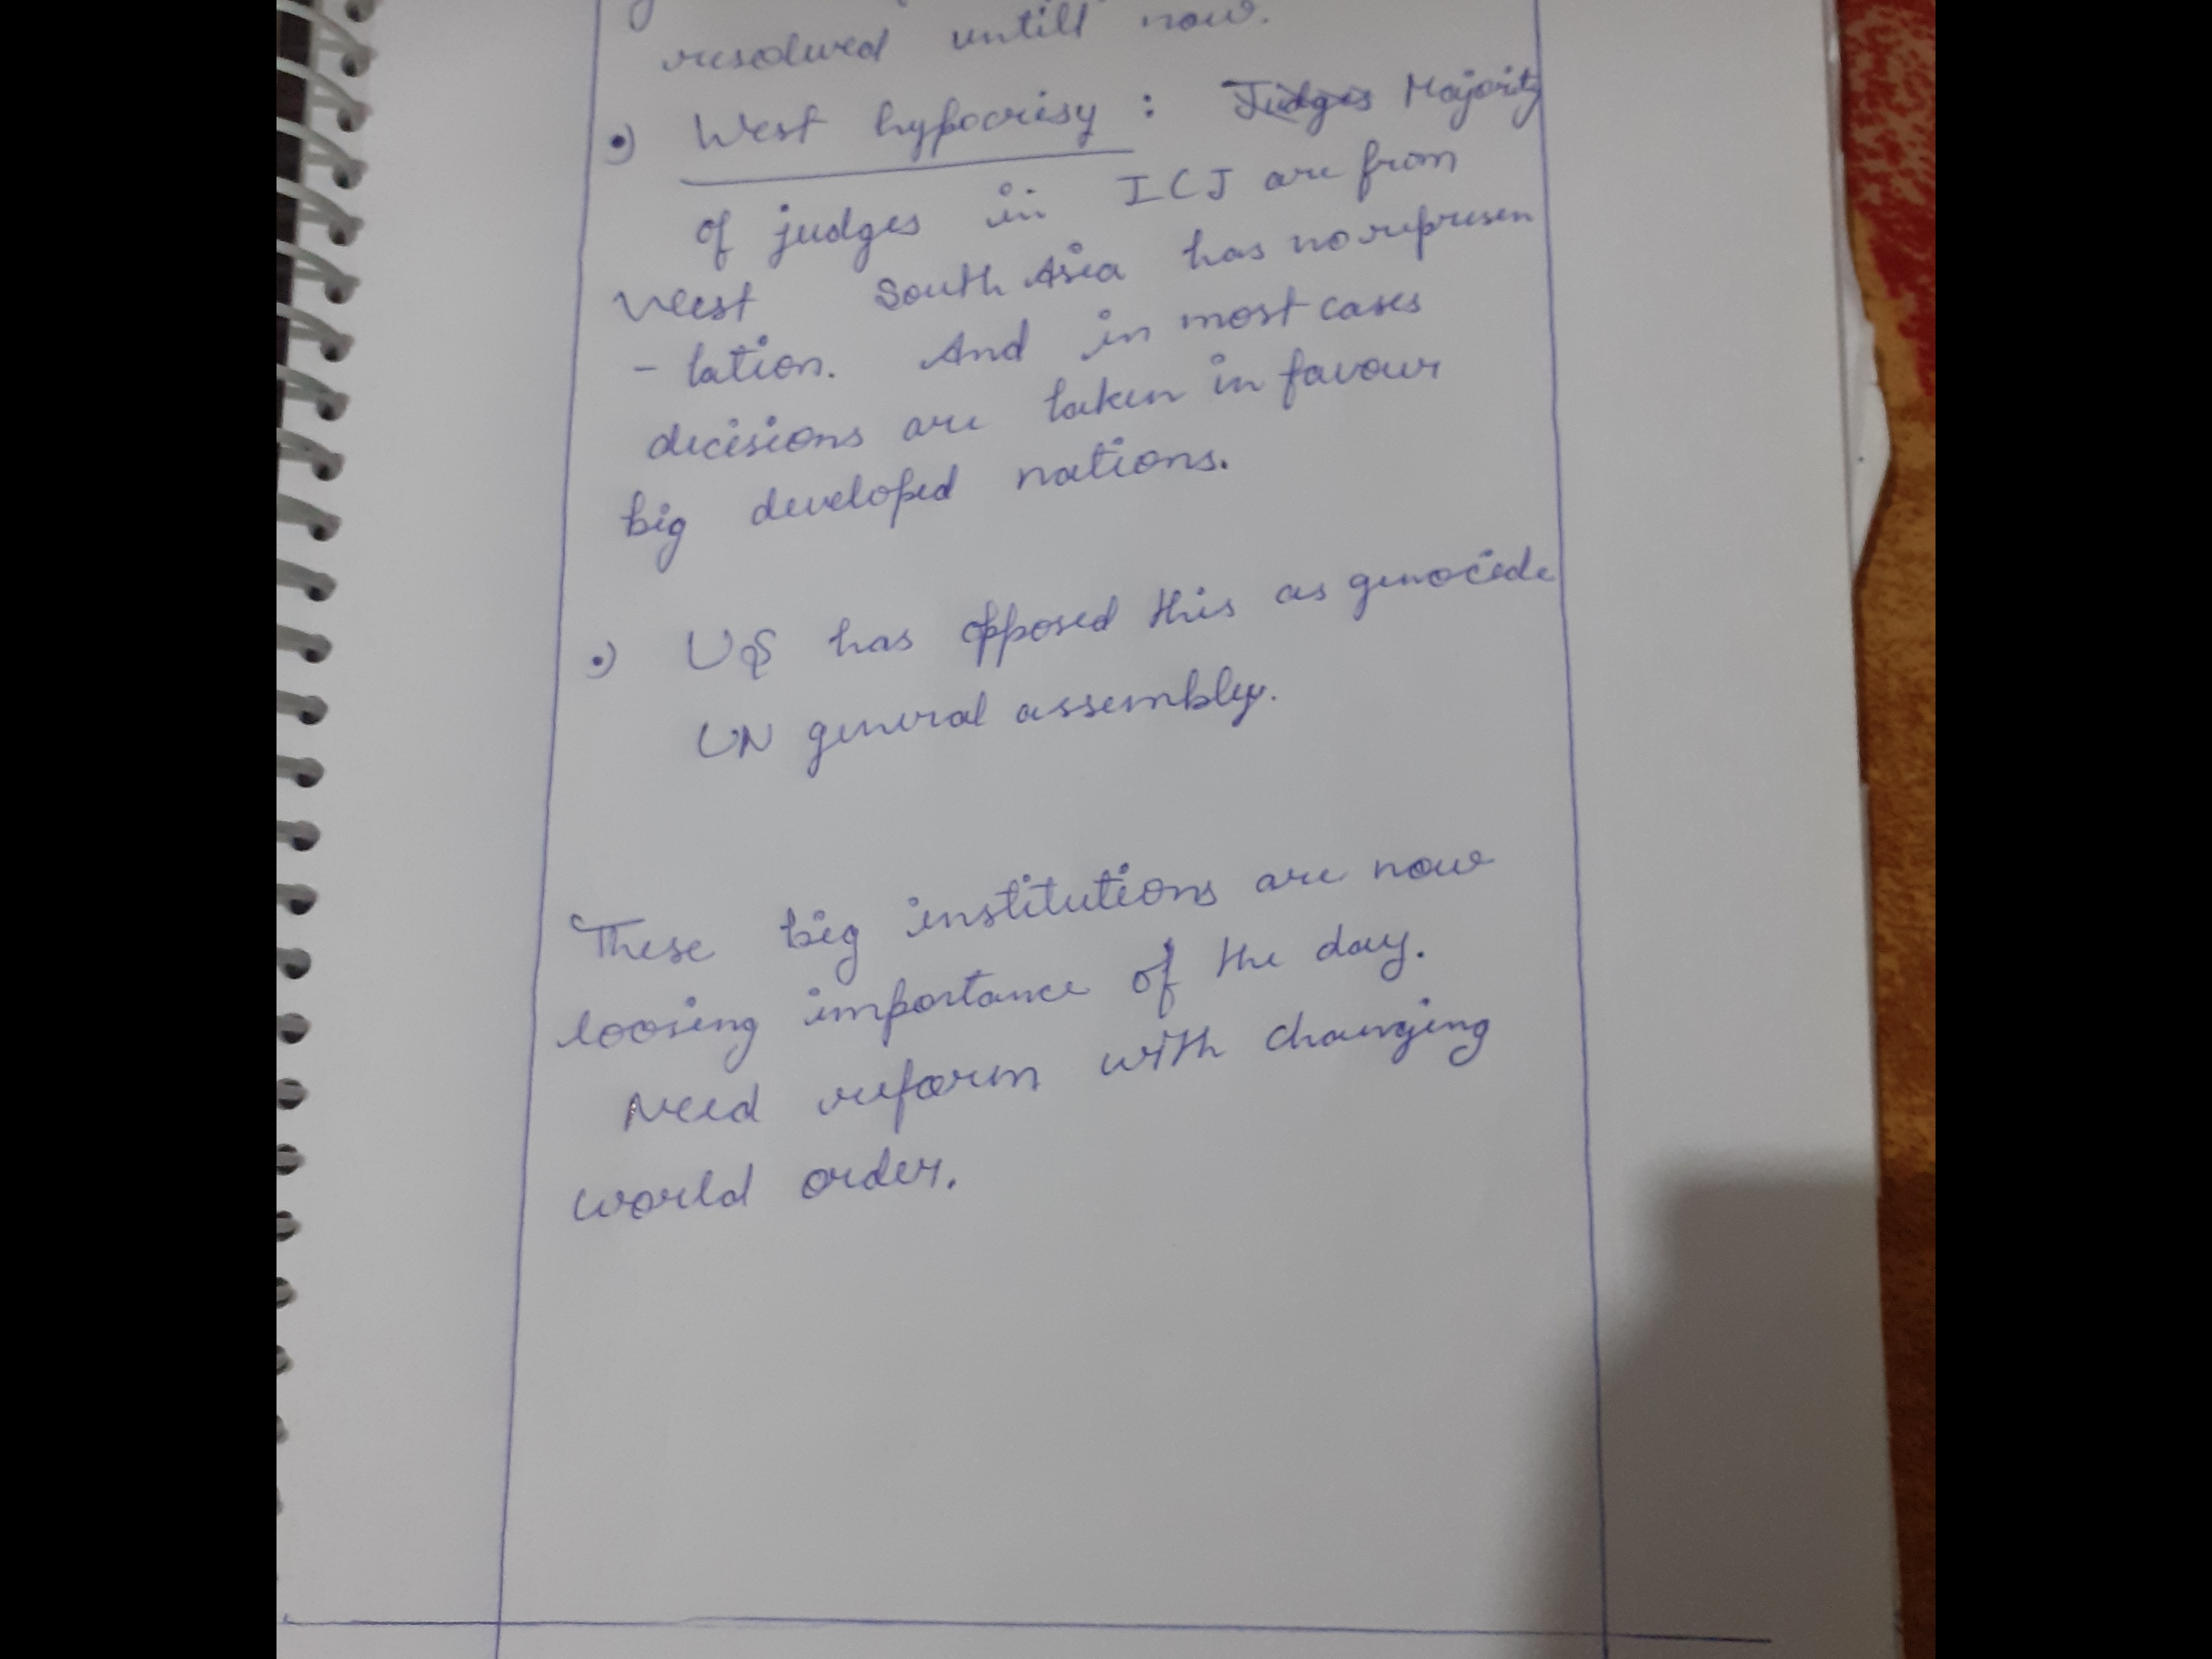 resolved untill now.
•) West hypocrisy : Judges Majority
of judges in ICJ are from
West South Asia has no represen
- tation. And in most cases
decisions are taken in favour
big developed nations.
•) US has opposed this as genocide
UN general assembly.
These big institutions are now
loosing importance of the day.
Need reform with changing
world order.